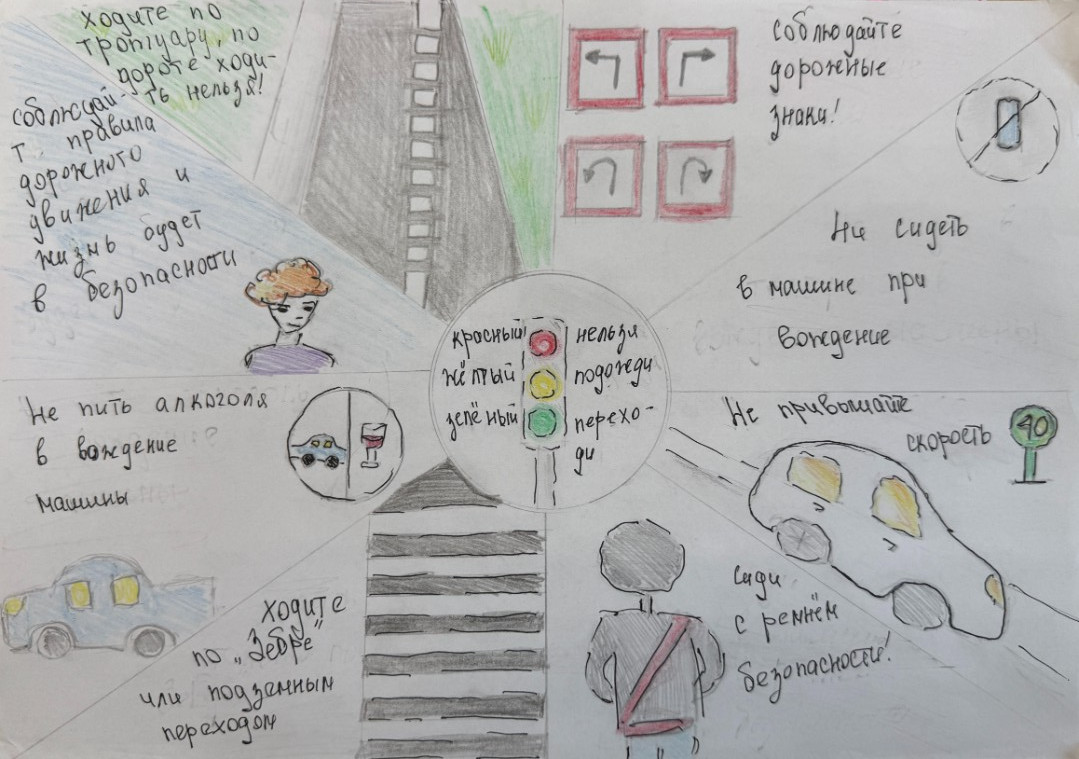 ходите по
тротуару, по
дороге ходи-
ть нельзя!
соблюдай-
т. правила
дорожного
движения и
жизнь будет
в безопасности
соблюдайте
дорожные
знаки!
Ни сидеть
в машине при
вождение
красный нельзя
жёлтый подожди
зелёный перехо-
ди
Не пить алкоголя
в вождение
машины
Не привышайте
скорость
40
ходите
по „Зебре"
или подземным
переходом
сиди
с ремнём
безопасности!